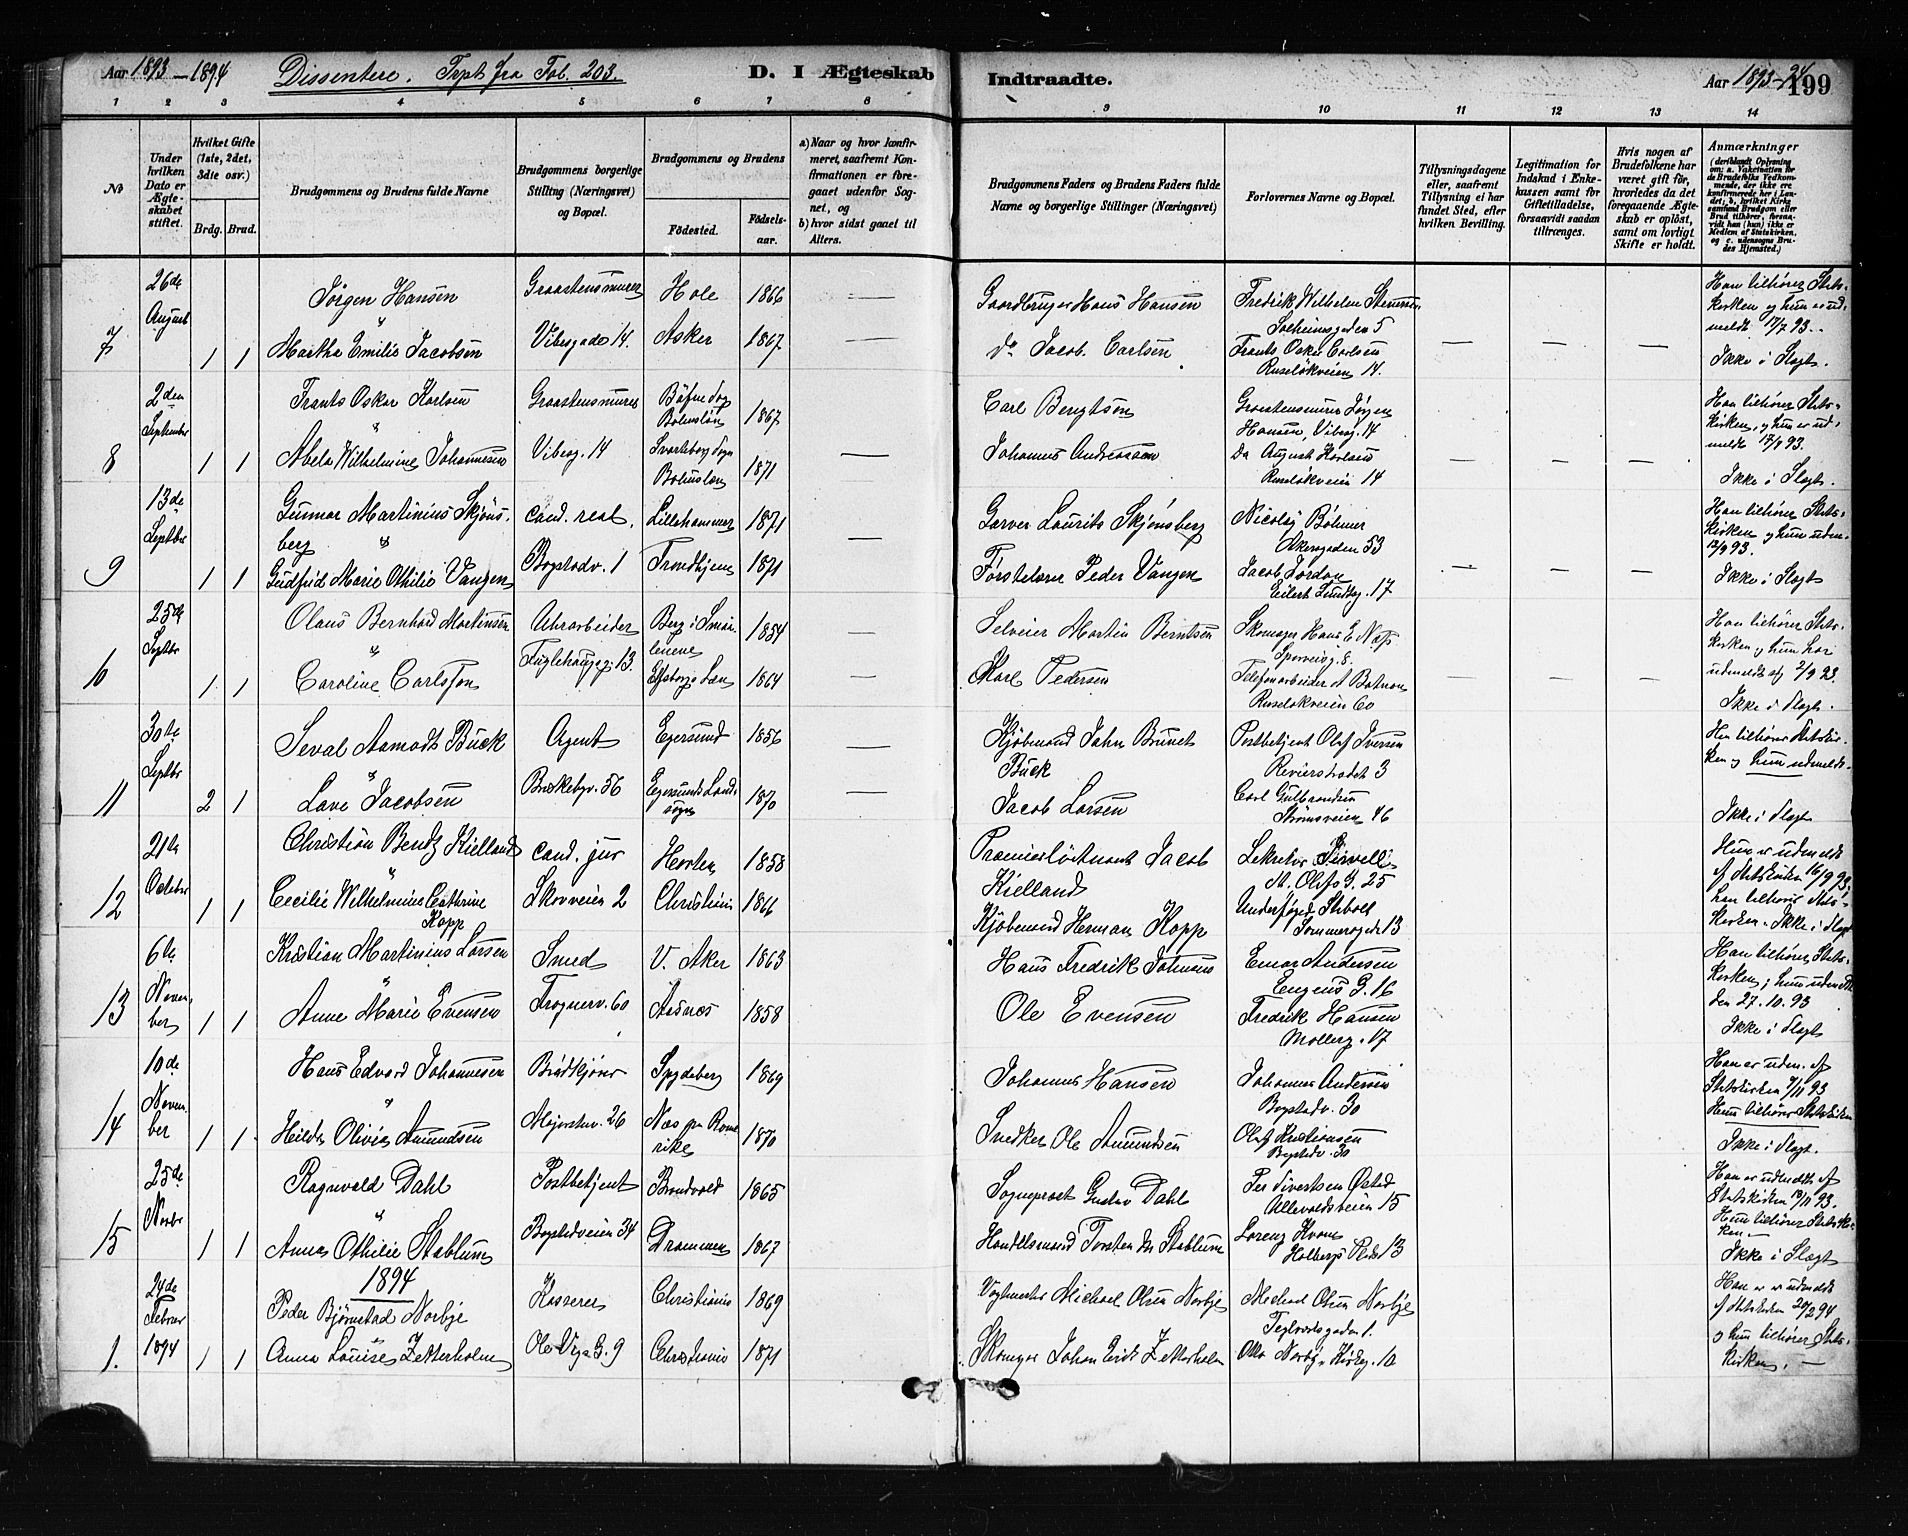 Aar 1893-1894 Dissentere. Trspt fra Fol. 203. D. I Ægteskab Indtraadte. Aar 1893-94 199
1 2 3 4 5 6 7 8 9 10 11 12 13 14
No
Under hvilken Dato er Ægteskabet stiftet.
Hvilket Gifte (1ste, 2det, 3die osv.)
Brdg. Brud.
Brudgommens og Brudens fulde Navne
Brudgommens borgerlige Stilling (Næringsvei) og Bopæl.
Brudgommens og Brudens
Fødested.
Fødselsaar.
a) Naar og hvor konfirmeret, saafremt Konfirmationen er foregaaet udenfor Sognet, og
b) hvor sidst gaaet til Alters.
Brudgommens Faders og Brudens Faders fulde Navne og borgerlige Stillinger (Næringsvei)
Forlovernes Navne og Bopæl.
Tillysningsdagene eller, saafremt Tillysning ei har fundet Sted, efter hvilken Bevilling.
Legitimation for Indskud i Enkekassen samt for Giftetilladelse, forsaavidt saadan tiltrænges.
Hvis nogen af Brudefolkene har været gift før, hvorledes da det foregaaende Ægteskab er opløst, samt om lovligt Skifte er holdt.
Anmærkninger
7 26de August 1 1
Jørgen Hansen Graastensmurer Hole 1866 — Gaardbruger Hans Hansen Fredrik Wilhelm
Solheimsgaden 5
Martha Emilie Jacobsen Vibesgade 14. Asker 1867 — do Jacob Carlsen Frants Oskar Carlsen
Ruseløkveien 14.
— — — Han tilhører Stats-
kirken og hun er ud-
meldt 17/7 93.
Ikke i Slægt.
8 2den September 1 1
Frants Oskar Karlsen Graastensmurer Bohuslän 1867 Carl Bengtsen Graastensmurer Jørgen
Hansen, Vibesg. 14
Abela Wilhelmine Johannesen Vibesg. 14 Svarteborg Sogn Bohuslän 1871 — Johannes Andreassen Do August Karlsen
Ruseløkveien 14
— — — Han tilhører Stats-
kirken, og hun er ud-
meldt 17/7 93.
Ikke i Slægt.
9 13de Septbr 1 1
Gunnar Martinius Skjøns-
berg cand. real. Lillehammer 1871 — Garver Laurits Skjønsberg Nicolaj Bøhmer
Akersgaden 53
Gudfrid Marie Othilie Vangen Bogstadv. 1 Trondhjem 1871 Førstelærer Peder Vangen Jacob Jordan
Eilert Sundtsg. 17
— — — Han tilhører Stats-
kirken og hun uden-
12/9 93.
Ikke i Slægt
10 25de Septbr 1 1
Olaus Bernhard Martinsen Berg i Smaalenene 1854 — Selveier Martin Berntsen Skomager Hans E Næss
Sporveisg. 8.
Caroline Carlsson Fuglehaugsg. 13. Elfsborgs Län 1864 — Karl Pedersen Telefonarbeider A
Ruseløkveien 60
— — — Han tilhører Stats-
kirken og hun har
udmeldt sig 2/9 93.
Ikke i Slægt.
11 30te Septbr 2 1
Seval Aamodt Buck Agent Egersund 1856 — Kjøbmand John Brunet Buck Postbetjent Olaf Iversen
Revierstredet 3
Lave Jacobsen Briskebyv. 56 Egersunds Landsogn 1870 — Jacob Larsen Carl Gulbrandsen
Strømsveien 46
Han tilhører Statskir-
ken og hun udmeldt.
Ikke i Slægt
12 21de October 1 1
Christian Bentz Kielland cand. jur Horten 1858 Premierløitnant Jacob Kielland Sekretær
St. Olafs G. 25
Cecilie Wilhelmine Cathrine Kopp Skovveien 2 Christiania 1866 Kjøbmand Herman Kopp Underfoged Stibolt
Sommerogade 13
Hun er udmeldt
af Statskirken 16/9 93,
han tilhører Stats-
kirken. Ikke i Slægt
13 6te November 1 1
Kristian Martinius Larsen Smed V. Aker 1863 Hans Fredrik Einar Andersen
Eugens G. 16
Anne Marie Evensen Frognerv. 60 Aasnæs 1858 Ole Evensen Fredrik Hansen
Møllerg. 17
Han tilhører Stats-
kirken, hun udmeldt
den 27.10.93
Ikke i Slægt
14 10de November 1 1
Hans Edvard Johannesen Brødkjører Spydeberg 1869 Johannes Hansen Johannes Andersen
Bogstadv. 30
Hilda Olivia Amundsen Majorstuv. 26 Næs paa Romerike 1870 Snedker Ole Amundsen Olaf Kristiansen
Bogstadv. 30
Han er udm. af
Statskirken 7/11 93
Hun tilhører Statskirken
Ikke i Slægt.
15 25de Novbr 1 1
Ragnvald Dahl Postbetjent Brandvold 1865 Sogneprest Gustav Dahl Per Sivertsen
Ullevoldsveien 15
Anna Othilie Stablum Bogstadveien 34 Drammen 1867 Handelsmand Torsten Stablum Lorenz
Holbergs Plads 13
Han er udmeldt af
Statskirken 93.
Hun tilhører Statskir-
ken.
Ikke i Slægt
1894
1. 24de Februar 1894 1 1
Peder Bjørnstad Norbye Kasserer Christiania 1869 Vognmester Michael Olsen Norbye Michael Olsen Norbye
Teglverksgaden 1.
Anna Louise Zetterholm Ole Vigs G. 9 Christiania 1871 Skomager Johan Zetterholm Otto Norbye 10
Han er udmeldt
af Statskirken 20/2 94
og hun tilhører Stats-
kirken. —